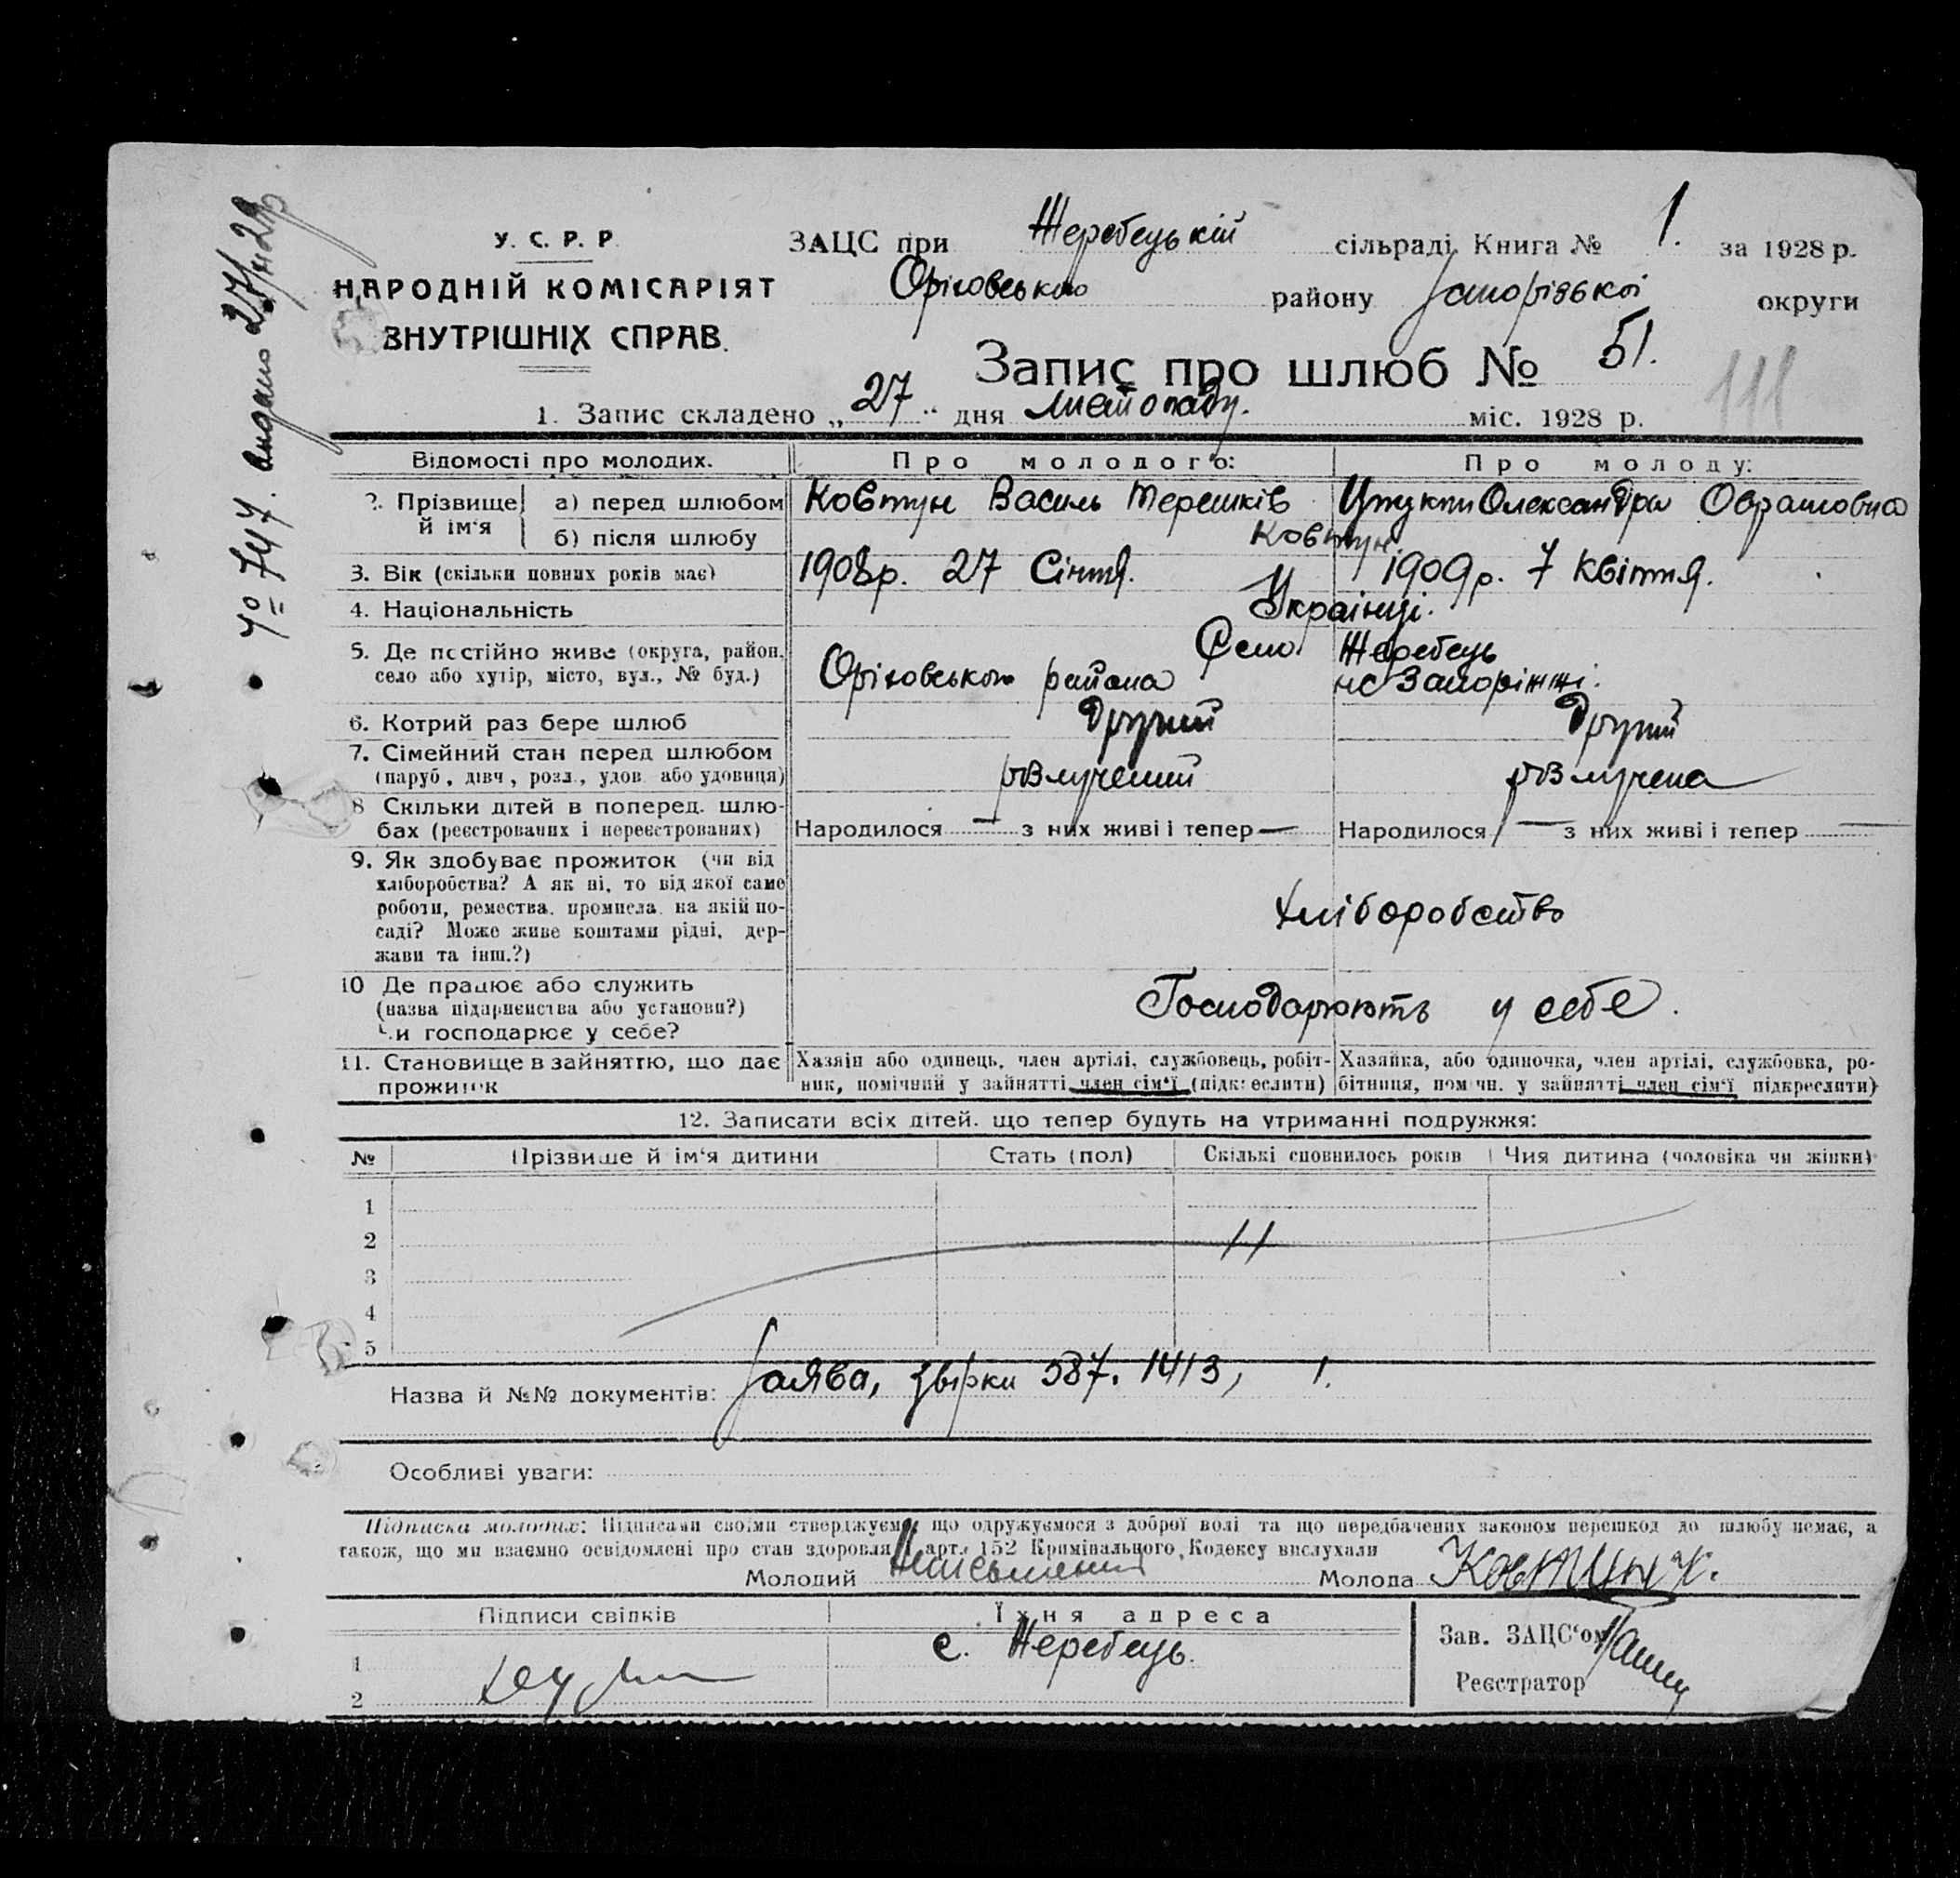 № 747. видано 27/XI 28р.
У. С. Р. Р.
НАРОДНІЙ КОМІСАРІЯТ
ВНУТРІШНІХ СПРАВ.
ЗАЦС при Жеребецькій сільраді. Книга № 1. за 1928 р.
Оріховського району Запорізької округи
Запис про шлюб № 51.
111
1. Запис складено „27" дня Листопаду. міс. 1928 р.
Відомості про молодих. Про молодого: Про молоду:
2. Прізвище й ім'я а) перед шлюбом Ковтун Василь Терешків Олександра
б) після шлюбу Ковтун
3. Вік (скільки повних років має) 1908р. 27 Січня. 1909р. 7 Квітня.
4. Національність Українці.
5. Де постійно живе (округа, район, село або хутір, місто, вул., № буд.) Село Жеребець
Оріховського района на Запоріжжі.
6. Котрий раз бере шлюб Другий Другий
7. Сімейний стан перед шлюбом
(паруб., дівч., розл., удов. або удовиця) розлучений розлучена
8 Скільки дітей в поперед. шлю-
бах (реєстрованих і нереєстрованих) Народилося — з них живі і тепер — Народилося — з них живі і тепер —
9. Як здобуває прожиток (чи від
хліборобства? А як ні, то від якої саме
роботи, ремества, промисла, на якій по-
саді? Може живе коштами рідні, дер-
жави та інш.?)
хліборобство
10 Де працює або служить
(назва підприємства або установи?)
Чи господарює у себе?
Господарюють у себе.
11. Становище в зайняттю, що дає
прожиток
Хазяін або одинець, член артілі, службовець, робіт-
ник, помічний у зайнятті член сім'ї (підкреслити)
Хазяйка, або одиночка, член артілі, службовка, ро-
бітниця, помічн. у зайнятті член сім'ї підкреслити)
12. Записати всіх дітей, що тепер будуть на утриманні подружжя:
№ Прізвише й ім'я дитини Стать (пол) Скількі сповнилось років Чия дитина (чоловіка чи жінки)
1
2
3
4
5
Назва й №№ документів: Заява, звірки 587. 1413, 1.
Особливі уваги:
Підписка молодих: Підписами своїми стверджуємо, що одружуємося з доброї волі та що передбачених законом перешкод до шлюбу немає, а
також, що ми взаємно освідомлені про стан здоровля й арт. 152 Кримінального Кодексу вислухали
Молодий Неписьменний Молода Ковтун
Підписи свідків Їхня адреса
1 с. Жеребець.
2
Зав. ЗАЦС'ом
Реєстратор